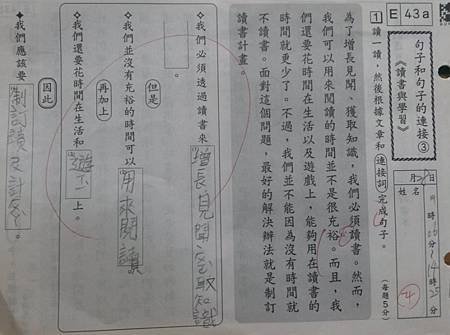 E 43a
句子和句子的連接③
《讀書與學習》
姓名
月 日
時 分
時 分
1 讀一讀，然後根據文章和連接詞完成句子。
（每題5分）
為了增長見聞、獲取知識，我們必須讀書。然而，
我們可以用來閱讀的時間並不是很充裕。而且，我
們還要花時間在生活以及遊戲上，能夠用在讀書的
時間就更少了。不過，我們並不能因為沒有時間就
不讀書。面對這個問題，最好的解決辦法就是制訂
讀書計畫。
我們必須透過讀書來增長見聞、獲取知識
。
但是
我們並沒有充裕的時間可以用來閱讀。
再加上
我們還要花時間在生活和遊戲上。
因此
我們應該要制訂讀書計畫。